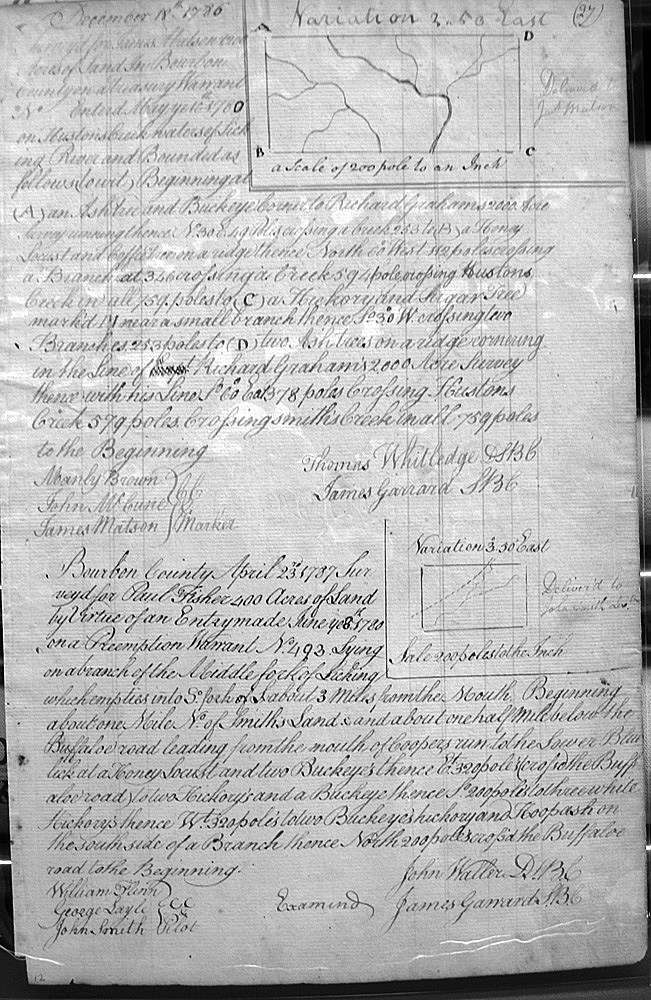 December 18th 1786
Variation 3..50 East
(27)
Survey'd for James Matson
Acres of Land In Bourbon
County on a treasury Warrant
No Enterd May ye 10th 1780
on Hustons Creek waters of Lick
ing River and Bounded as
follows (towit) Beginning at
A
D
B
C
a Scale of 200 pole to an Inch
Deliver'd to
Jas Matson
(A) an Ash tree and Buckeye Corner to Richard Grahams 2000 Acre
Survey runing thence crossing a Creek 253 to (B) a Honey
Locust and on a ridge thence North 60 West 112 poles crossing
a Branch at 346 crossing a Creek 594 poles crossing Hustons
Creek in all 759 poles to (C) a Hickory and Sugar Tree
mark'd near a small branch thence So 30 W crossing two
Branches 253 poles to (D) two Ash trees on a ridge cornering
in the Line of Richard Graham's 2000 Acre Survey
thence with his Line So 60 East 378 poles Crossing Hustons
Creek 579 poles Crossing smiths Creek In all 759 poles
to the Beginning
Thomas Whitledge DSBC
James Garrard SBC
Manly Brown
John McCune CC
James Matson Marker
Bourbon County April 23rd 1787 Sur
vey'd for Paul Fisher 400 Acres of Land
by Virtue of an Entry made June ye 8th 1780
on a Preemption Warrant No 493 Lying
on a branch of the Middle fork of Licking
Variation 3.50 East
Deliver'd to
John Smith
Sale 200 poles to the Inch
which empties into So fork of L about 3 Miles from the Mouth, Beginning
about one Mile No of Smiths Land & and about one half Mile below the
Buffaloe road leading from the mouth of Coopers run to the Lower Blue
lick at a Honey Locust and two Buckeye's thence Et 320 poles (cros'd the Buff
aloe road) to two Hickory's and a Buckeye thence So 200 poles to three white
Hickorys thence Wt 320 poles to two Buckeyes hickory and Hoopash on
the south side of a Branch thence North 200 poles cross'd the Buffaloe
road to the Beginning.
John Waller DSBC
William Flinn
George Layle CC
John Smith Pilot
Examind James Garrard SBC
12